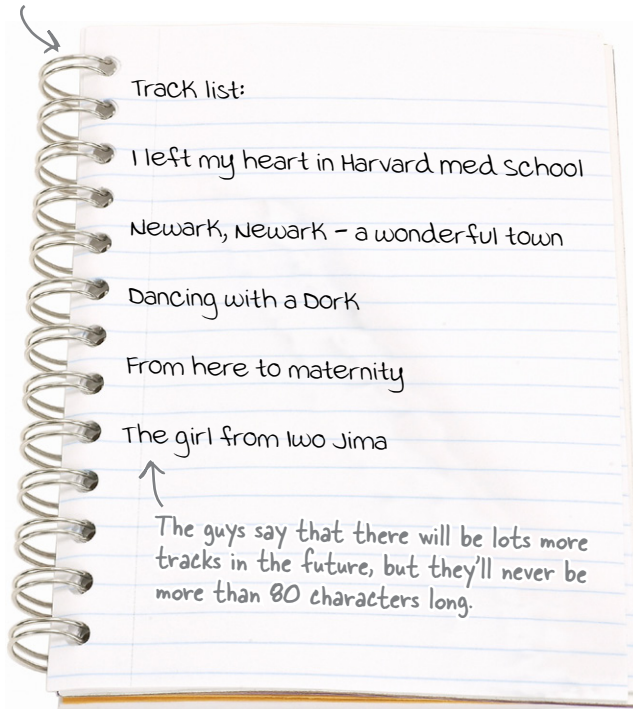 Track list:
I left my heart in Harvard med school
Newark, Newark - a wonderful town
Dancing with a Dork
From here to maternity
The girl from Iwo Jima
The guys say that there will be lots more
tracks in the future, but they'll never be
more than 80 characters long.